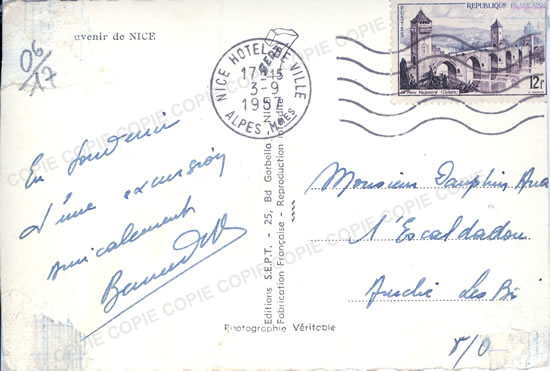 06
17
uvenir de NICE
NICE HOTEL DE VILLE
17H15
3-9
1957
ALPES-MMES
POSTES
REPUBLIQUE FRANÇAISE
Le Pont Valentré (Cahors)
12F
En souvenir
d'une excursion
amicalement
Editions S.E.P.T. - 25, Bd Gorbella, NICE
Fabrication Française - Reproduction interdite
Photographie Véritable
Monsieur Dauphin
l'Escaldadou
Les
COPIE COPIE COPIE COPIE